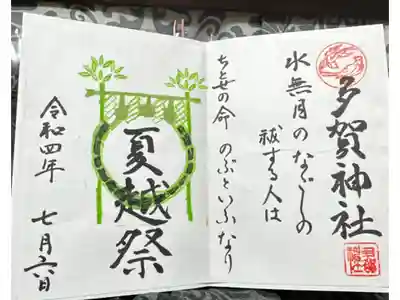 多賀神社
水無月のなごしの
祓する人は
ちとせの命
のぶといふなり
夏越祭
令和四年
七月六日